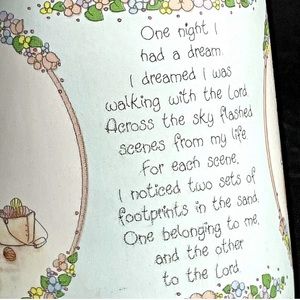 One night I
had a dream.
I dreamed I was
walking with the Lord.
Across the sky flashed
scenes from my life.
For each scene,
I noticed two sets of
footprints in the sand,
One belonging to me,
and the other
to the Lord.